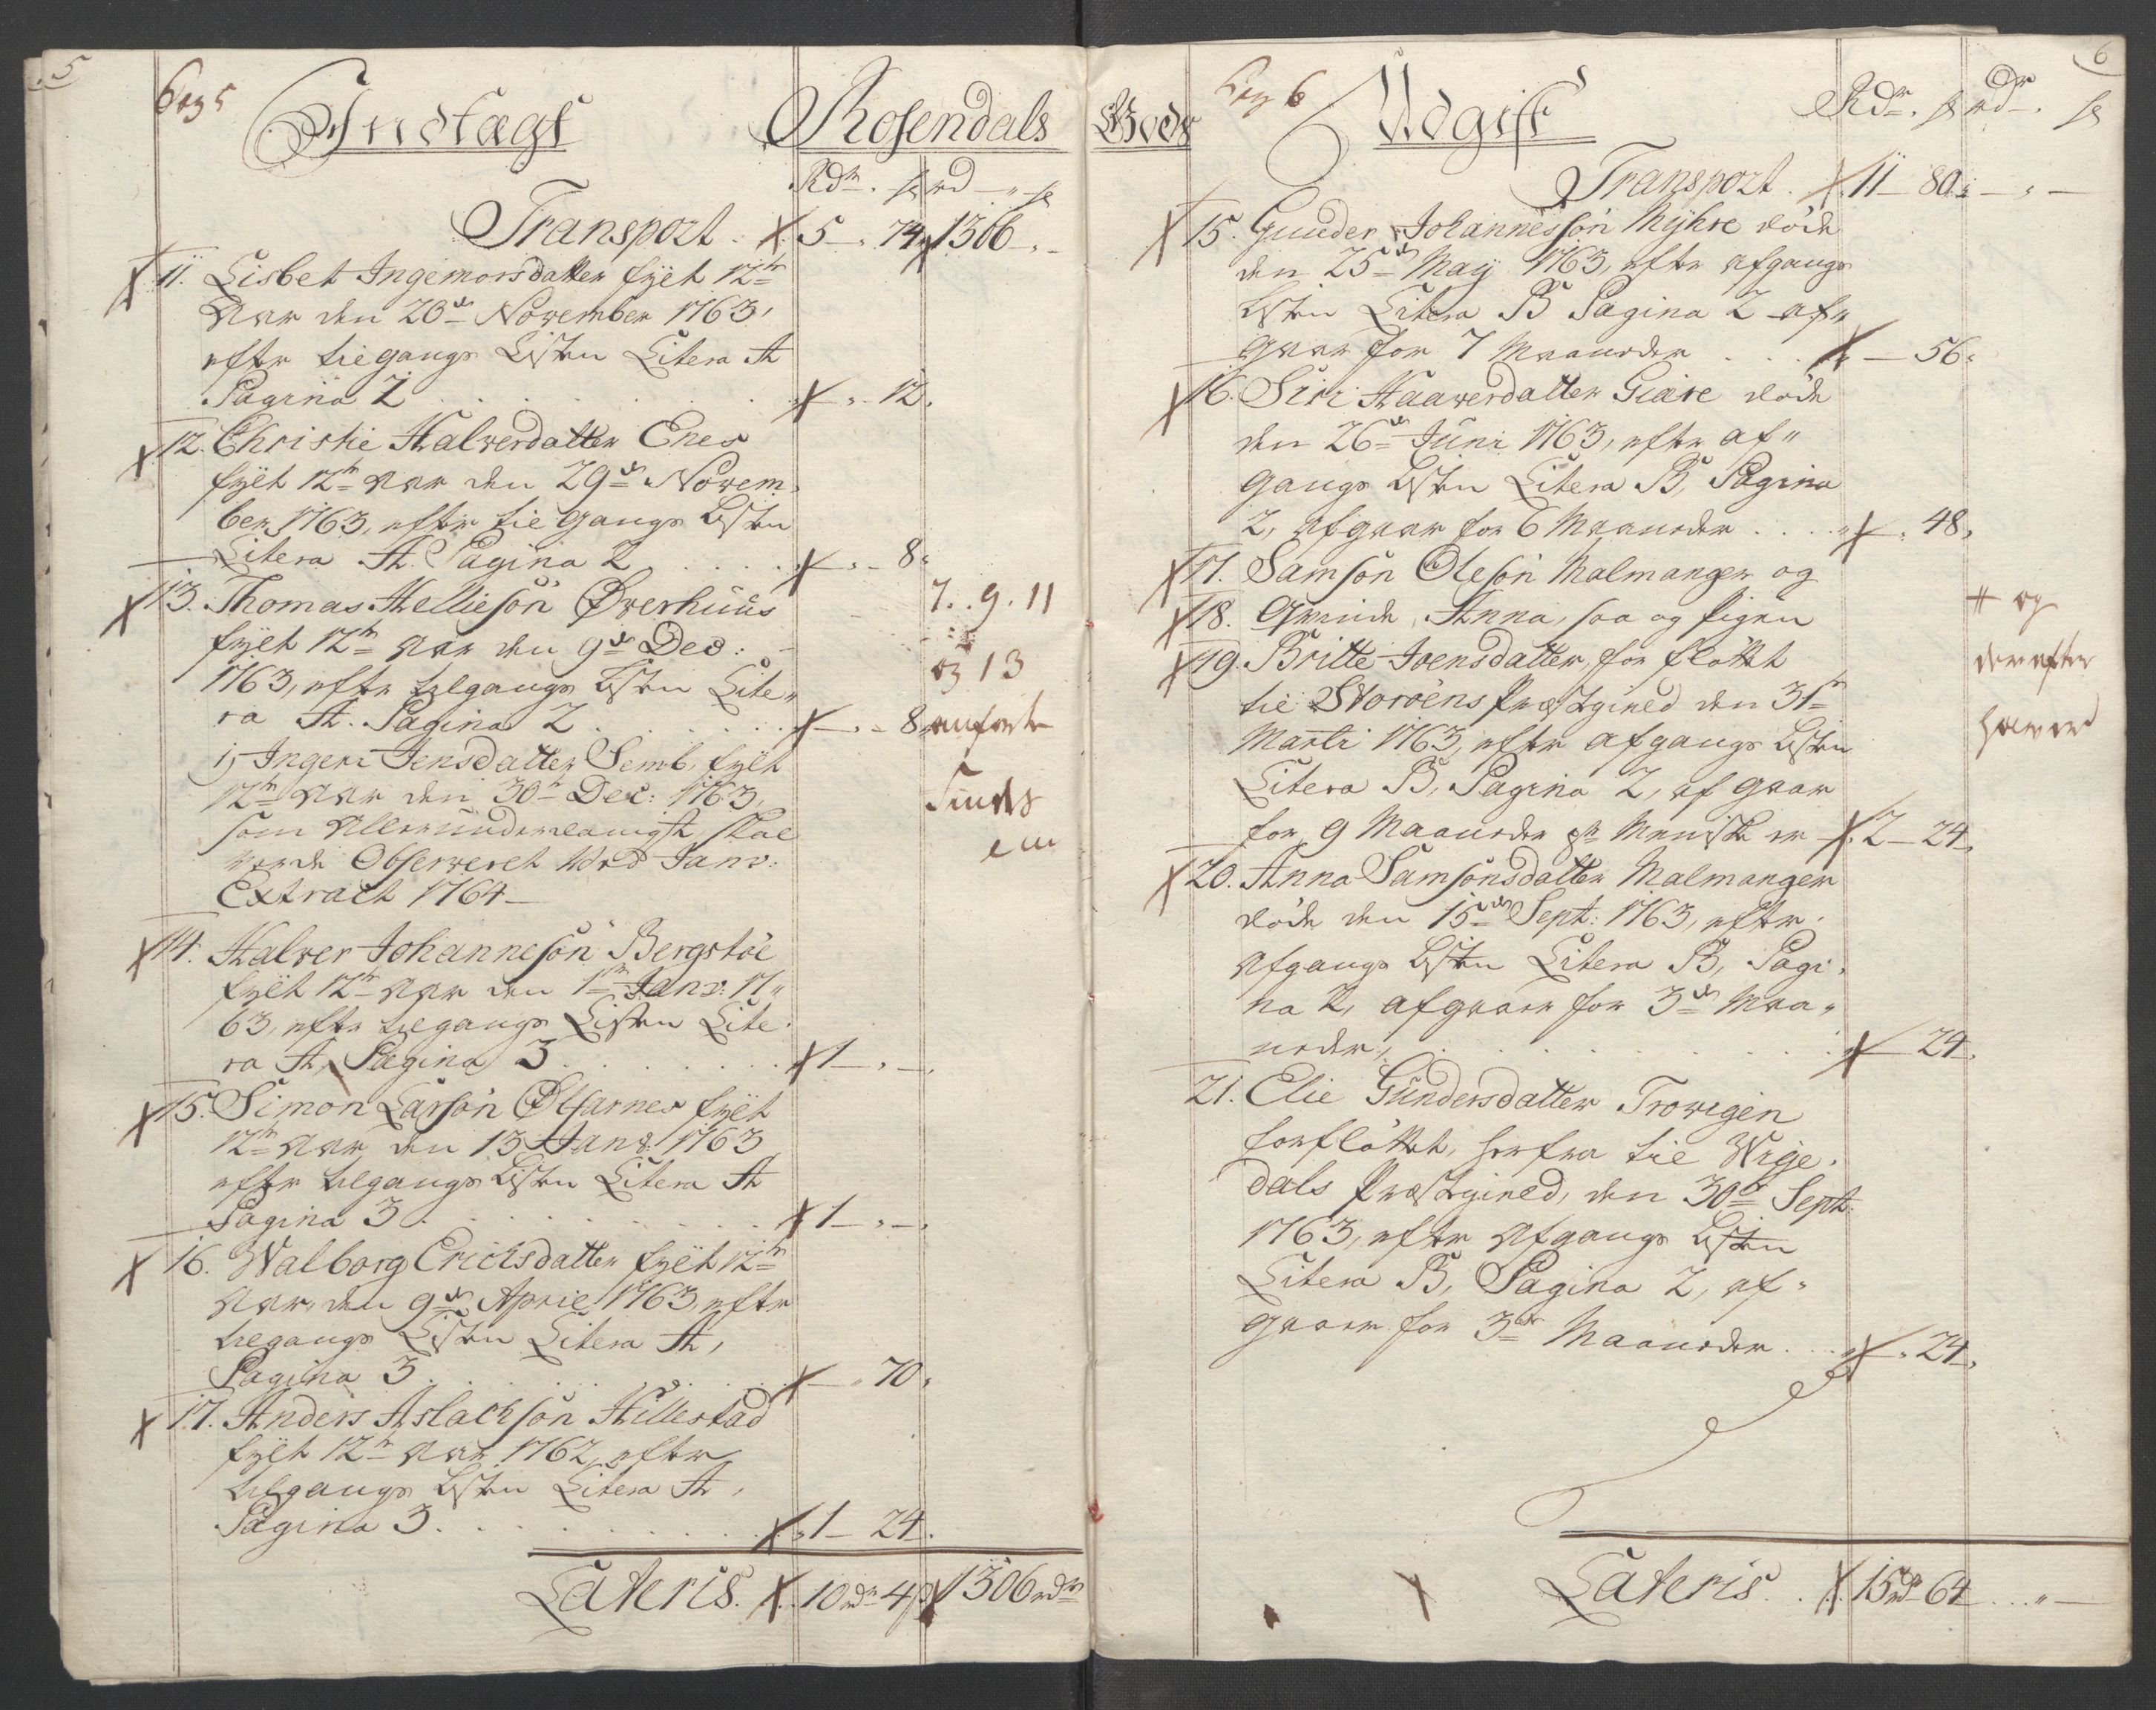 5
Indtægt Rosendals
Rdr. ß rd ß
Transport . 5 " 74 1306 "
11. Lisbet Ingemorsdatter fyët 12te
Aar den 20de November 1763,
efter tilgangs Listen Litera A
Pagina 2 . . . . . . " 12.
12. Christie Halverdatter Enes
fyët 12te Aar den 29de Novem,
ber 1763, efter tilgangs Listen
Litera A. Pagina 2 . . . . " 8
13. Thomas Hellieson Øverhuus
fyët 12te Aar den 9de Dec:
1763, efter tilgangs Listen Lite,,
ra A. Pagina 2 . . . . . " 8
7. 9. 11
og 13
anførte
j, Ingeri Jensdatter Semb, fyët
12te Aar den 30te Dec: 1763,
som Allerunderdanigst skal
vorde Observeret ved Janv:
Extract 1764
14. Halver Johanneson Bergstöe
fyët 12te Aar den 1te Janv: 17,,
63, efter tilgangs Listen Lite,
ra A, Pagina 3 . . . . . 1 " "
15. Simon Larsön Ølfarnes fyët
12te Aar den 13 Janv: 1763
efter tilgangs Listen Litera A
Pagina 3 . . . . . 1 " "
16. Walborg Erichsdatter fyët 12te
Aar, den 9de April 1763, efter
tilgangs Listen Litera A,
Pagina 3 . . . . . " 70,
17. Anders Aslachsön Hillestad
fyët 12te Aar 1762, efter
tilgangs Listen Litera A,
Pagina 3 . . . . . 1 24.
Lateris. 10rdr 4ß 1306rdr
6
Gods Udgift Rdr. ß rdr. ß
Transport . 11 80 " "
15. Gunder Johannesson Myhre döde
den 25de Maij 1763, efter afgangs
Listen Litera B Pagina 2 af,,
gaar for 7 Maaneder . . . 56,
16. Siri Haaverdatter Giære döde
den 26de Juni 1763, efter af,,
gangs Listen Litera B, Pagina
2, afgaar for 6 Maaneder . . . . 48,
17. Samson Oleson Malmanger og
18. Qvinde, Anna, saa og Pigen
19. Britte Joensdatter, for flöttet
til Storöens Præstgield den 31te
Marti 1763, efter afgangs Listen
Litera B, Pagina 2, af gaar
for 9 Maaneder pr Menniske er 2 24,
# og
derefter
20. Anna Samsonsdatter Malmanger
döde den 15de Sept: 1763, efter
Afgangs Listen Litera B, Pagi,
na 2, afgaar for 3de Maa,,
neder, . . . . . 24.
21. Elie Gundersdatter Trovigen
forflöttet, herfra til Wige,
dals Præstgield, den 30te Sept:
1763, efter Afgangs Listen
Litera B, Pagina 2, af,
gaar for 3de Maaneder . . . 24,
Lateris . . 15rdr 64 . . . "